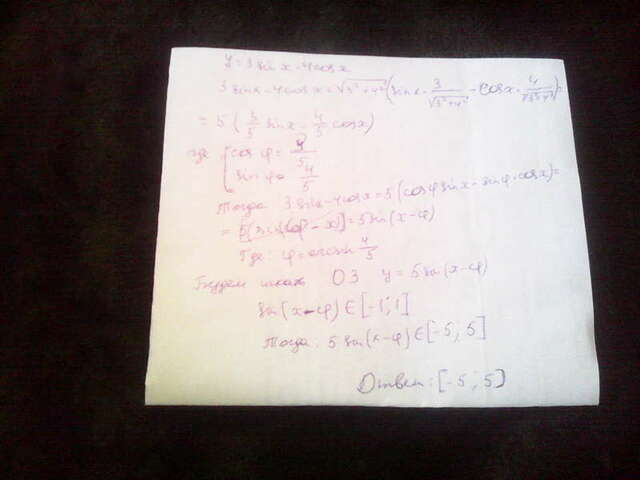 y = 3 sin x - 4 cos x
3 sin x - 4 cos x = √(3² + 4²) (sin x · 3/√(3² + 4²) - cos x · 4/√(3² + 4²)) =
= 5 (3/5 sin x - 4/5 cos x)
где { cos φ = /5
sin φ = 4/5
Тогда 3 sin x - 4 cos x = 5 (cos φ sin x - sin φ · cos x) =
= 5 = 5 sin (x - φ)
Где: φ = arcsin 4/5
Будем искать ОЗ y = 5 sin (x - φ)
sin (x - φ) ∈ [-1; 1]
Тогда: 5 sin (x - φ) ∈ [-5; 5]
Ответ: [-5; 5]